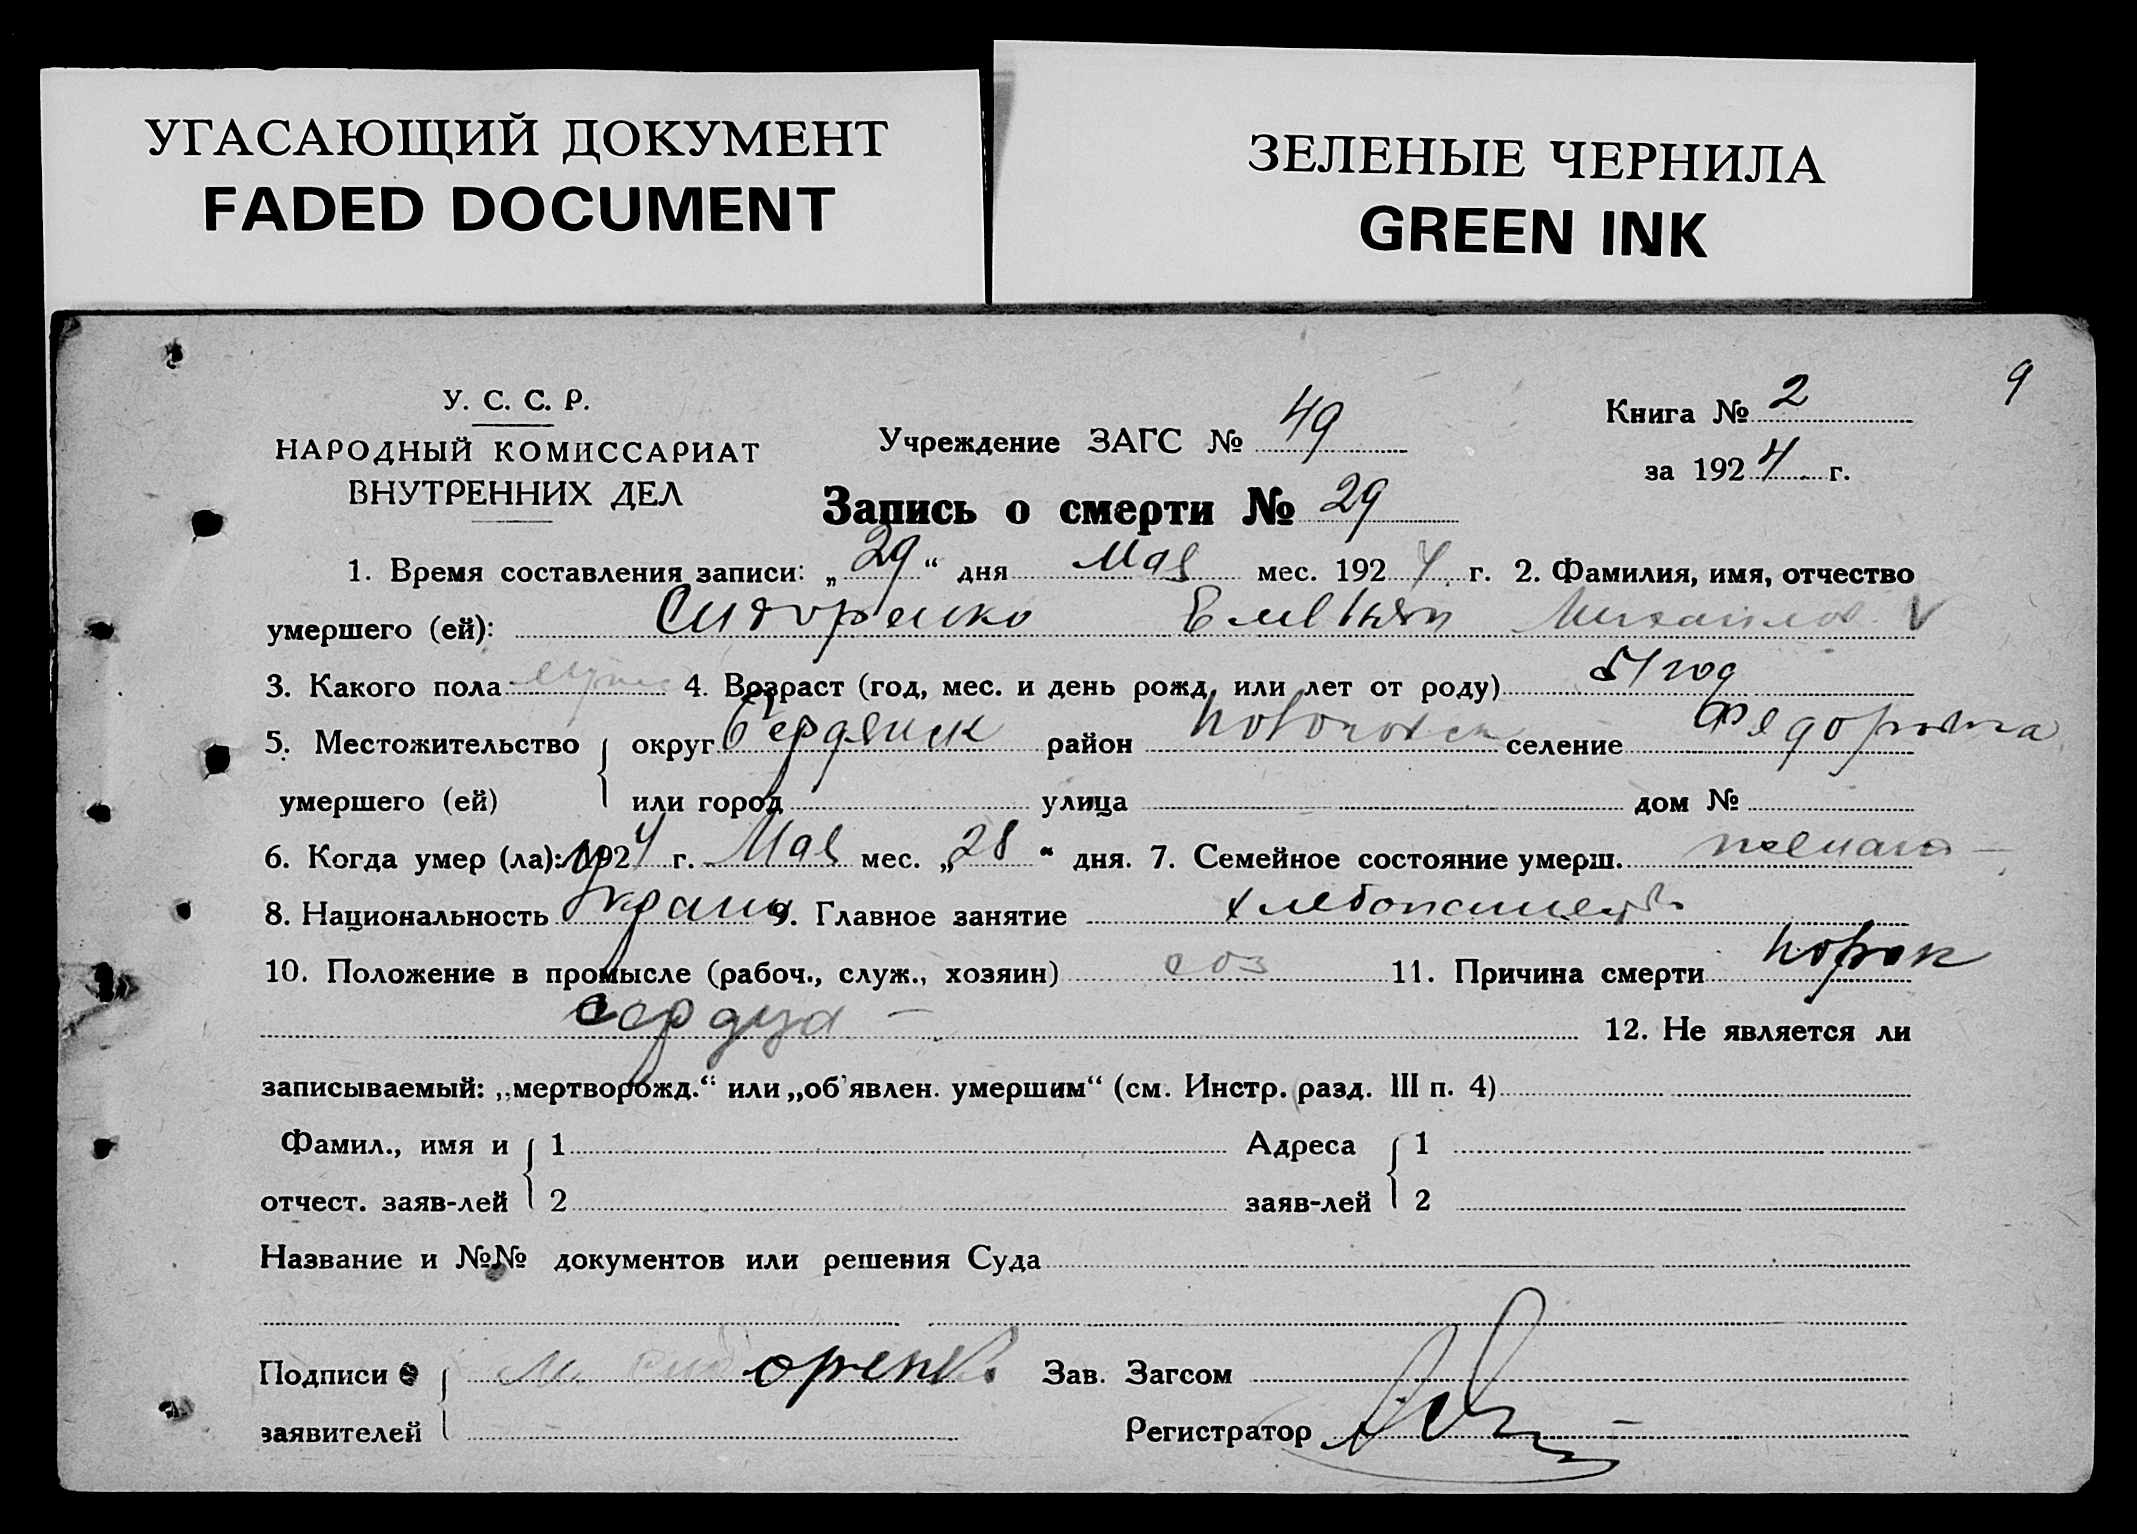 УГАСАЮЩИЙ ДОКУМЕНТ
FADED DOCUMENT
ЗЕЛЕНЫЕ ЧЕРНИЛА
GREEN INK
9
У. С. С. Р.
НАРОДНЫЙ КОМИССАРИАТ
ВНУТРЕННИХ ДЕЛ
Учреждение ЗАГС № 49
Книга № 2
за 1924 г.
Запись о смерти № 29
1. Время составления записи: „29“ дня Мая мес. 1924 г. 2. Фамилия, имя, отчество
умершего (ей): Сидоренко Емельян Михайлов
3. Какого пола муж 4. Возраст (год, мес. и день рожд. или лет от роду) 51 год
5. Местожительство округ Бердянск район селение Федоровка
умершего (ей) или город улица дом №
6. Когда умер (ла): 1924 г. Мая мес. „28“ дня. 7. Семейное состояние умерш.
8. Национальность Украин 9. Главное занятие хлебопашец
10. Положение в промысле (рабоч., служ., хозяин) хоз 11. Причина смерти порок
сердца
12. Не является ли
записываемый: „мертворожд.“ или „об'явлен. умершим“ (см. Инстр. разд. III п. 4)
Фамил., имя и 1 Адреса 1
отчест. заяв-лей 2 заяв-лей 2
Название и №№ документов или решения Суда
Подписи М. Сидоренко Зав. Загсом
заявителей Регистратор